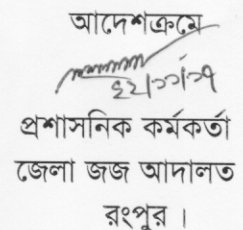 আদেশক্রমে
প্রশাসনিক কর্মকর্তা
জেলা জজ আদালত
রংপুর ।